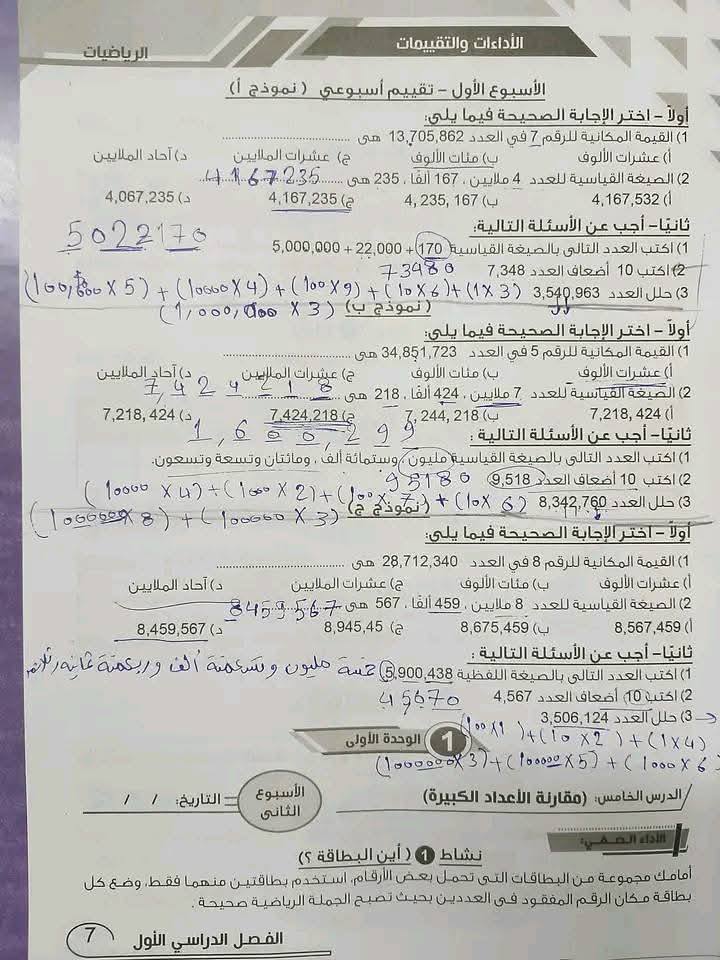 الأداءات والتقييمات
الرياضيات
الأسبوع الأول – تقييم أسبوعي ( نموذج أ)
أولاً – اختر الإجابة الصحيحة فيما يلي:
1) القيمة المكانية للرقم 7 في العدد 13,705,862 هى ........................
أ) عشرات الألوف ب) مئات الألوف ج) عشرات الملايين د) آحاد الملايين
2) الصيغة القياسية للعدد 4 ملايين ، 167 ألفًا ، 235 هى 4167235
أ) 4,167,532 ب) 4, 235, 167 ج) 4,167,235 د) 4,067,235
ثانيًا– أجب عن الأسئلة التالية:
5022170
1) اكتب العدد التالى بالصيغة القياسية 170 + 22,000 + 5,000,000
2) اكتب 10 أضعاف العدد 7,348 73480
3) حلل العدد 3,540,963 (1×3) + (10×6) + (100×9) + (10000×4) + (100,000×5)
(1,000,000 × 3)
(نموذج ب)
أولاً – اختر الإجابة الصحيحة فيما يلي:
1) القيمة المكانية للرقم 5 في العدد 34,851,723 هى ........................
أ) عشرات الألوف ب) مئات الألوف ج) عشرات الملايين د) آحاد الملايين
2) الصيغة القياسية للعدد 7 ملايين ، 424 ألفًا ، 218 هى 7,424218
أ) 7,218, 424 ب) 7, 244, 218 ج) 7,424,218 د) 7,218, 424
ثانيًا– أجب عن الأسئلة التالية :
1,600,299
1) اكتب العدد التالى بالصيغة القياسية (مليون ، وستمائة ألف ، ومائتان وتسعة وتسعون.
2) اكتب 10 أضعاف العدد 9,518 95180
3) حلل العدد 8,342,760 (10×6) + (100×7) + (1000×2) + (10000×4)
(1000000×8) + (100000×3)
(نموذج ج)
أولاً – اختر الإجابة الصحيحة فيما يلي:
1) القيمة المكانية للرقم 8 في العدد 28,712,340 هى ........................
أ) عشرات الألوف ب) مئات الألوف ج) عشرات الملايين د) آحاد الملايين
2) الصيغة القياسية للعدد 8 ملايين ، 459 ألفًا ، 567 هى 8459567
أ) 8,567,459 ب) 8,675,459 ج) 8,945,45 د) 8,459,567
ثانيًا– أجب عن الأسئلة التالية:
1) اكتب العدد التالى بالصيغة اللفظية 5,900,438 خمسة مليون وتسعمئة ألف وربعمئة
2) اكتب 10 أضعاف العدد 4,567 45670
3) حلل العدد 3,506,124
(100×1) + (10×2) + (1×4)
(1000000×3) + (100000×5) + (1000×6)
1 الوحدة الأولى
الدرس الخامس: (مقارنة الأعداد الكبيرة) الأسبوع الثانى التاريخ: / /
الأداء الصفي:
نشاط 1 ( أين البطاقة ؟)
أمامك مجموعة من البطاقات التى تحمل بعض الأرقام، استخدم بطاقتين منهما فقط، وضع كل
بطاقة مكان الرقم المفقود فى العددين بحيث تصبح الجملة الرياضية صحيحة .
الفصل الدراسي الأول 7